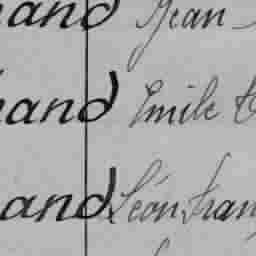 and Jean
and Emile
and Léon Fran